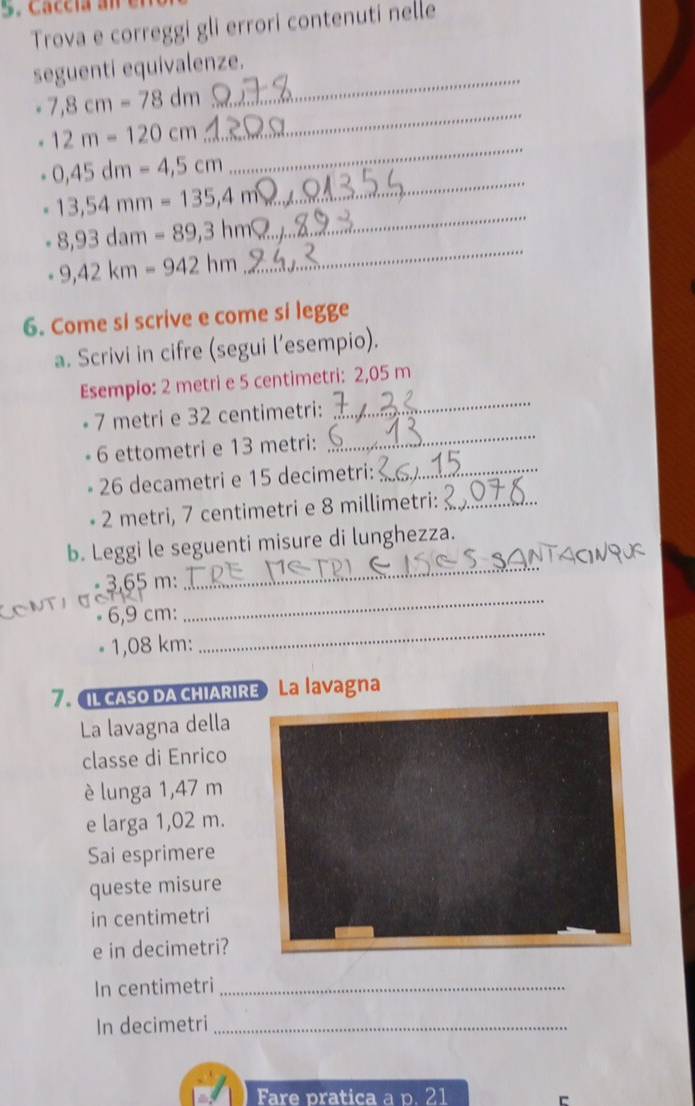 5. Caccia all'
Trova e correggi gli errori contenuti nelle
seguenti equivalenze.
• 7,8 cm = 78 dm 0,78
• 12 m = 120 cm 1200
• 0,45 dm = 4,5 cm
• 13,54 mm = 135,4 m 0,01354
• 8,93 dam = 89,3 hm 0,893
• 9,42 km = 942 hm 94,2
6. Come si scrive e come si legge
a. Scrivi in cifre (segui l'esempio).
Esempio: 2 metri e 5 centimetri: 2,05 m
• 7 metri e 32 centimetri: 7,32
• 6 ettometri e 13 metri: 6,13
• 26 decametri e 15 decimetri: 26,15
• 2 metri, 7 centimetri e 8 millimetri: 2,078
b. Leggi le seguenti misure di lunghezza.
• 3,65 m: TRE METRI E SESSANTACINQUE
CENTI
• 6,9 cm:
• 1,08 km:
7. IL CASO DA CHIARIRE La lavagna
La lavagna della
classe di Enrico
è lunga 1,47 m
e larga 1,02 m.
Sai esprimere
queste misure
in centimetri
e in decimetri?
In centimetri
In decimetri
Fare pratica a p. 21